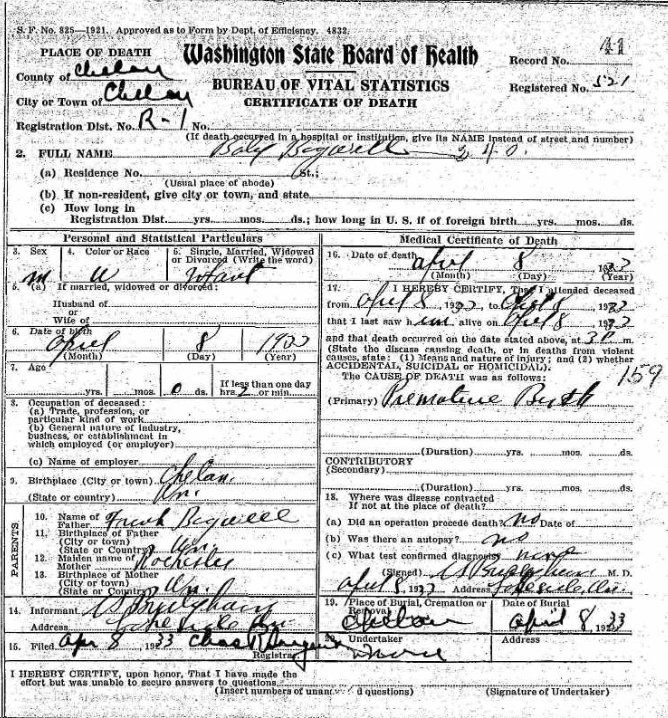 S. F. No. 825—1921. Approved as to Form by Dept. of Efficiency. 4832.
PLACE OF DEATH
Washington State Board of Health
Record No. 41
County of Chelan
BUREAU OF VITAL STATISTICS
Registered No. 521
City or Town of Chelan
CERTIFICATE OF DEATH
Registration Dist. No. R-1 No.
(If death occurred in a hospital or institution, give its NAME instead of street and number)
2. FULL NAME Baby
(a) Residence No. St.;
(Usual place of abode)
(b) If non-resident, give city or town, and state
(c) How long in
Registration Dist. yrs. mos. ds.; how long in U. S. if of foreign birth yrs. mos. ds.
Personal and Statistical Particulars
3. Sex
4. Color or Race
5. Single, Married, Widowed
or Divorced (Write the word)
m W Infant
5. (a) If married, widowed or divorced:
Husband of
or
Wife of
6. Date of birth
April 8
(Month) (Day) (Year)
7. Age
yrs. mos. 0 ds.
If less than one day
hrs. 2 or min.
8. Occupation of deceased:
(a) Trade, profession, or
particular kind of work
(b) General nature of industry,
business, or establishment in
which employed (or employer)
(c) Name of employer
9. Birthplace (City or town) Chelan
(State or country) Wn.
PARENTS
10. Name of
Father Frank
11. Birthplace of Father
(City or town)
(State or Country) Wn.
12. Maiden name of
Mother
13. Birthplace of Mother
(City or town)
(State or Country) Wn.
14. Informant
Address Lakeside Wn.
15. Filed Apr 8 1933
Registrar
Medical Certificate of Death
16. Date of death
April 8
(Month) (Day) (Year)
17. I HEREBY CERTIFY, That I attended deceased
from April 8 to April 8
that I last saw him alive on April 8
and that death occurred on the date stated above, at m.
(State the disease causing death, or in deaths from violent
causes, state: (1) Means and nature of injury; and (2) whether
ACCIDENTAL, SUICIDAL or HOMICIDAL).
The CAUSE OF DEATH was as follows:
159
(Primary) Premature Birth
(Duration) yrs. mos. ds.
CONTRIBUTORY
(Secondary)
(Duration) yrs. mos. ds.
18. Where was disease contracted
If not at the place of death?
(a) Did an operation precede death? no Date of
(b) Was there an autopsy? no
(c) What test confirmed diagnosis none
(Signed) M. D.
April 8 Address Lakeside, Wn.
19. Place of Burial, Cremation or
Removal
Date of Burial
Chelan April 8 1933
20. Undertaker
Address
None
I HEREBY CERTIFY, upon honor, That I have made the
effort but was unable to secure answers to questions
(Insert numbers of unanswered questions)
(Signature of Undertaker)